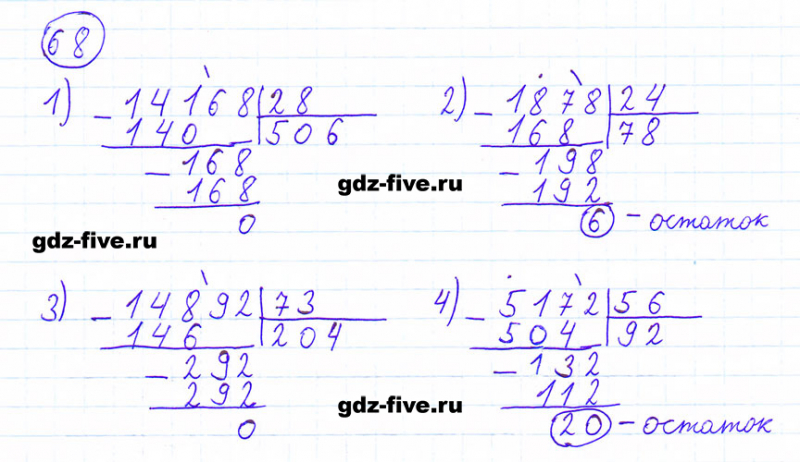 68
1) - 14168 | 28
140 | 506
- 168
168
0
2) - 1878 | 24
168 | 78
- 198
192
6 - остаток
gdz-five.ru
gdz-five.ru
3) - 14892 | 73
146 | 204
- 292
292
0
4) - 5172 | 56
504 | 92
- 132
112
20 - остаток
gdz-five.ru